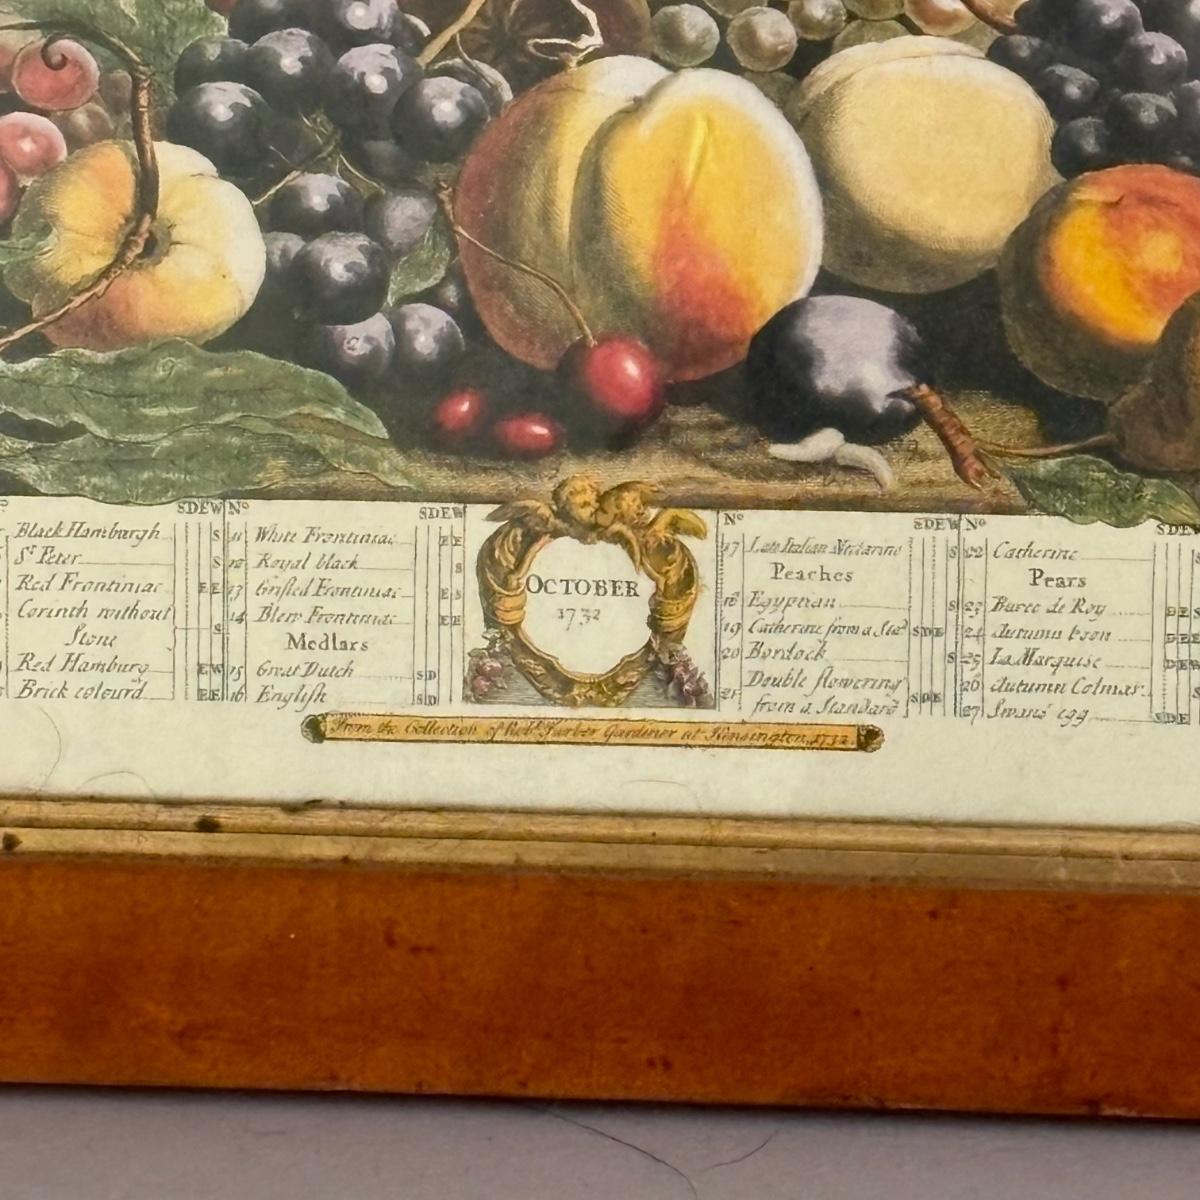 SDEW
Black Hamburgh S
St Peter
Red Frontiniac EE
Corinth without
Stone S
Red Hamburg EW
Brick colour'd EE
No SDEW
11 White Frontiniac EE
12 Royal black S
13 Grisled Frontiniac ES
14 Blew Frontiniac EE
Medlars
15 Great Dutch SD
16 English SD
OCTOBER
1732
No SDEW
17 Late Italian Nectarine S
Peaches
18 Egyptian S
19 Catherine from a SDE
20 Bordock S
Double flowering
21 from a Standard SDE
No SDEW
22 Catherine S
Pears
23 Buree de Roy DES
24 Autumn DEE
25 La Marquise DEW
26 Autumn Colmar
27 Swans egg SDE
From the Collection of Robt. Furber Gardiner at Kensington 1732